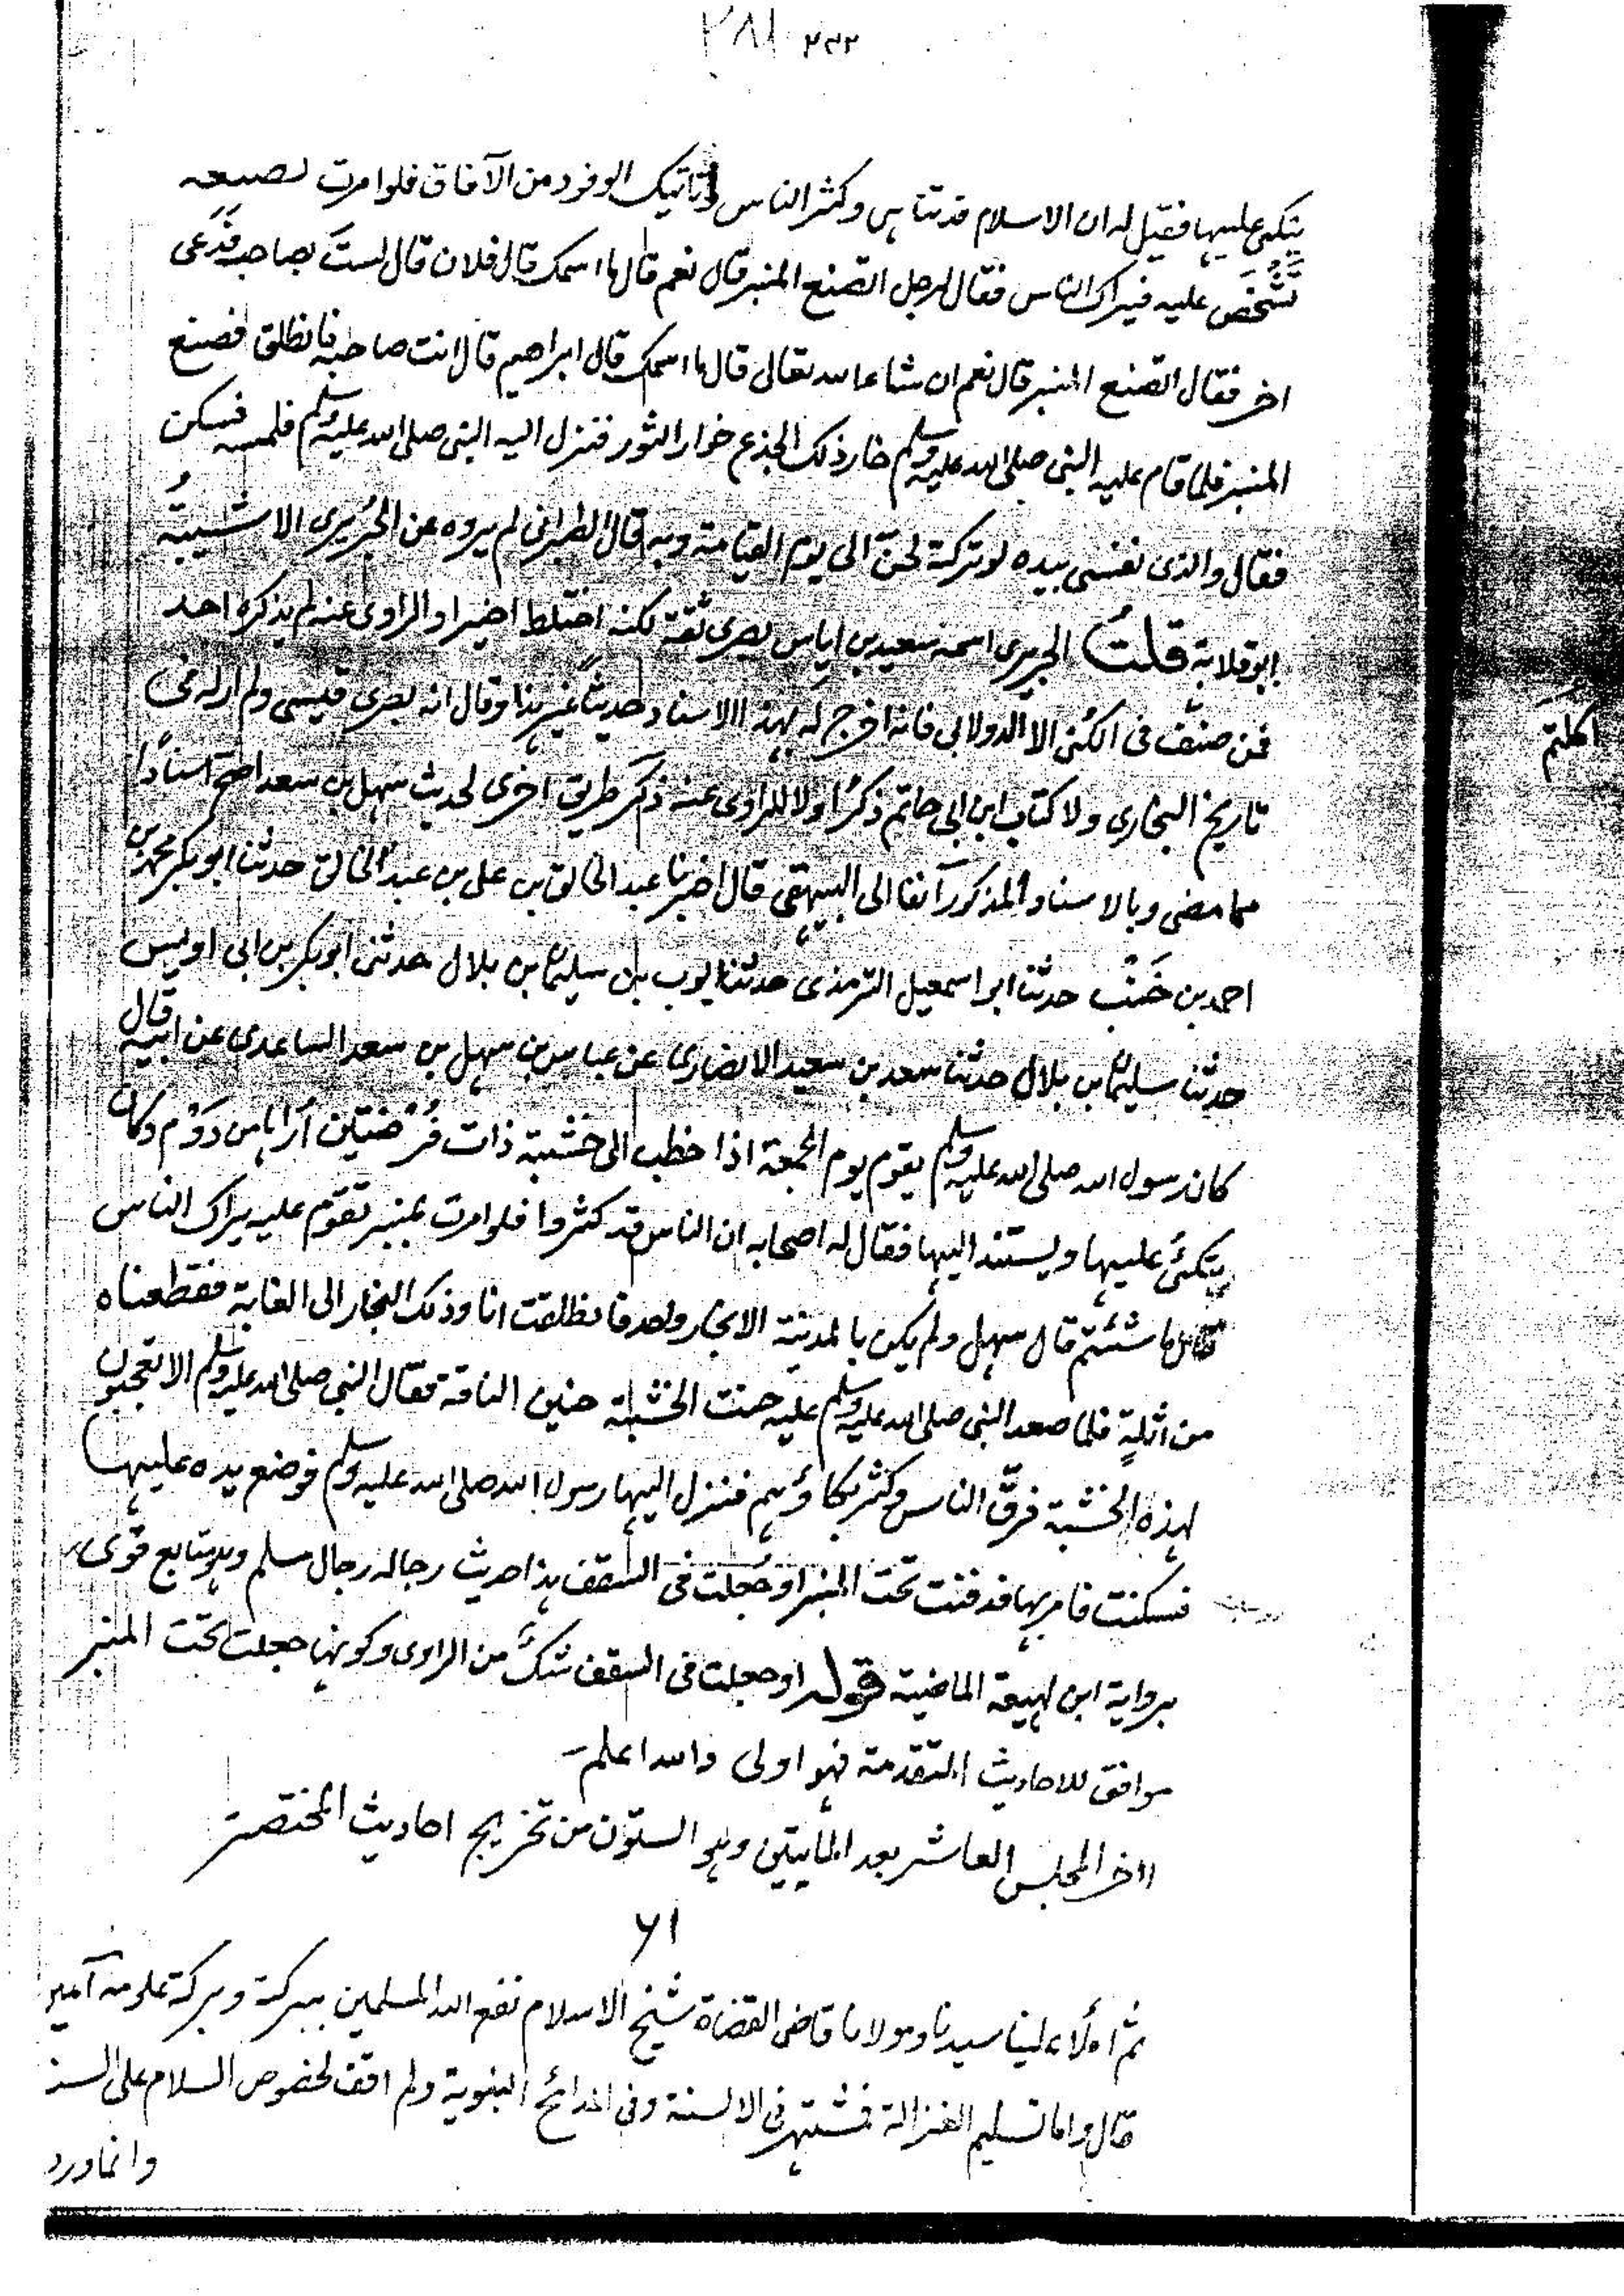 ٢٨١ ٢٣٢
يتكئ عليها فقيل له ان الاسلام قد تناهى وكثر الناس وتاتيك الوفود من الآفاق فلو امرت بصنعه
تشخص عليه فيراك الناس فقال لرجل اتصنع المنبر قال نعم قال ما اسمك قال فلان قال لست بصاحبه فدعى
اخر فقال اتصنع المنبر قال نعم ان شاء الله تعالى قال ما اسمك قال ابراهيم قال انت صاحبه فانطلق فصنع
المنبر فلما قام عليه النبى صلى الله عليه وسلم خار ذلك الجذع خوار الثور فنزل اليه النبى صلى الله عليه وسلم فلمسه فسكن
فقال والذى نفسى بيده لو تركته لحنّ الى يوم القيامة وبه قال الطبرانى لم يروه عن الجُريرى الا شيبةُ
ابو قلابة قلتُ الجريرى اسمه سعيد بن اياس بصرى ثقة لكنه اختلط اخيرا والراوى عنه لم يذكره احد
فمن صنّف فى الكُنى الا الدولابى فانه اخرج له بهذا الاسناد حديثًا غير هذا وقال انه بصرى قيسى ولم ار له فى
تاريخ البخارى ولا كتاب ابن ابى حاتم ذكرًا ولا للراوى عنه ذكر طريق اخرى لحديث سهل بن سعد اصح اسنادًا
مما مضى وبالاسناد المذكور آنفا الى البيهقى قال اخبرنا عبد الخالق بن على بن عبد الخالق حدثنا ابو بكر محمد بن
احمد بن خَنْب حدثنا ابو اسمعيل الترمذى حدثنا ايوب بن سليمان بن بلال حدثنى ابو بكر بن ابى اويس
حدثنا سليمان بن بلال حدثنا سعد بن سعيد الانصارى عن عباس بن سهل بن سعد الساعدى عن ابيه قال
كان رسول الله صلى الله عليه وسلم يقوم يوم الجمعة اذا خطب الى خشبة ذات فُرْضتين أراها من دَوْم وكان
يتكئ عليها ويستند اليها فقال له اصحابه ان الناس قد كثروا فلو امرت بمنبر تقوم عليه يراك الناس
قال ما شئتم قال سهل ولم يكن بالمدينة الا نجار واحد فانطلقت انا وذلك النجار الى الغابة فقطعناه
من اثلةٍ فلما صعد النبى صلى الله عليه وسلم عليه حنت الخشبة حنين الناقة فقال النبى صلى الله عليه وسلم الا تعجبون
لهذه الخشبة فرقّ الناس وكثر بكاؤهم فنزل اليها رسول الله صلى الله عليه وسلم فوضع يده عليها
فسكنت فامر بها فدفنت تحت المنبر او جُعلت فى السقف هذا حديث رجاله رجال مسلم وهو متابع قوى
برواية ابن لهيعة الماضية قوله او جعلت فى السقف شكٌ من الراوى وكونها جعلت تحت المنبر
موافق للاحاديث المتقدمة فهو اولى والله اعلم
آخر المجلس العاشر بعد المأيتين وهو الستون من تخريج احاديث المختصر
٦١
ثم املأ علينا سيدنا ومولانا قاضى القضاة شيخ الاسلام نفع الله المسلمين ببركته وبركة علومه آمين
قال واما تسليم الغزالة فمشتهر فى الالسنة وفى المدائح النبوية ولم اقف لخصوص السلام على السند
وانما ورد